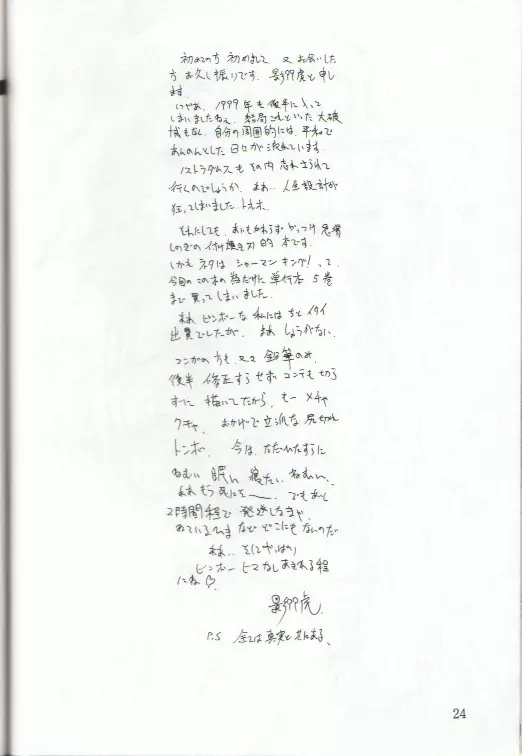 初めての方 初めまして 又 お会いした
方 お久し振りです. 影卯虎と申し
ます.
いやぁ. 1999年も後半に入って
しまいましたねぇ. 結局 これといった 大破
もなし. 自分の周囲的には, 平和で
あんのんとした 日々が流れています.
ノストラダムスも その内 忘れ去られて
行くのでしょうか. まぁ.. 人生設計が
狂ってしまいました. トホホ.
それにしても. あいもかわらず やっつけ
しのぎの 付け焼き刃的 本です.
しかも ネタは シャーマン キング! って.
今回の この本の為だけに 単行本 5巻
まで 買ってしまいました.
まぁ ビンボーな 私には ちと イタイ
出費でしたが. まぁ しょうがない.
マンガの方も 又々 鉛筆のみ.
後半 修正すらせず コンテも切ら
ずに 描いてたから, もー メチャ
クチャ. おかげで 立派な 尻切れ
トンボ. 今は, ただひたすらに
ねむい 眠い 寝たい ねむい、
でもあと
2時間程で 発送しなきゃ.
ねているひまなど どこにもないのだ
まぁ.. そしてやっぱり
ビンボー ヒマなし あきれる程
にね♡.
影卯虎.
P.S 全ては 真実と共にある、
24